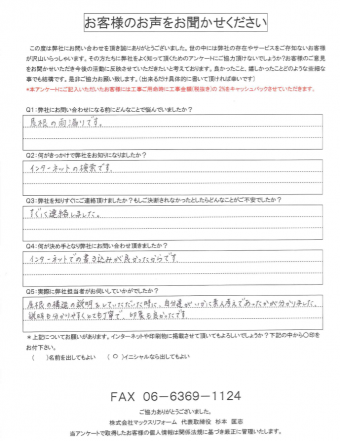 お客様のお声をお聞かせください
この度は弊社にお問い合わせを頂き誠にありがとうございました。世の中には弊社の存在やサービスをご存知ないお客様
が沢山いらっしゃいます。その方たちに弊社をよく知って頂くためのアンケートにご協力頂けないでしょうか?お客様のご意見
をお聞かせいただき今後の活動に反映させていただきたいと考えております。良かったこと、嬉しかったことどのような些細な
事でも結構です。是非ご協力お願い致します。(出来るだけ具体的に書いて頂ければ幸いです)
*本アンケートにご記入いただいたお客様には工事ご用命時に工事金額(税抜き)の 2%をキャッシュバックさせていただきます。
Q1:弊社にお問い合わせになる前にどんなことで悩んでいましたか?
屋根の雨漏りです。
Q2:何がきっかけで弊社をお知りになりましたか?
インターネットの検索です。
Q3:弊社を知りすぐにご連絡頂けましたか?もしご決断されなかったとしたらどんなことがご不安でしたか?
すぐに連絡しました。
Q4:何が決め手となり弊社にお問い合わせ頂きましたか?
インターネットでの書き込みが良かったからです
Q5:実際に弊社担当者がお伺いしていかがでしたか?
屋根の構造の説明をしていただいた時に、自分達がいかに素人考えであったかが分かりました。
説明も分かりやすくとても丁寧で、印象も良かったです。
*上記についてお願いがあります。インターネットや印刷物に掲載させて頂いてもよろしいでしょうか?下記の中から〇印を
お付下さい。
( )名前を出してもよい (〇)イニシャルなら出してもよい
FAX 06-6369-1124
ご協力ありがとうございました。
株式会社マックスリフォーム 代表取締役 杉本 匡志
当アンケートで取得したお客様の個人情報は関係法規に基づき厳正に管理いたします。